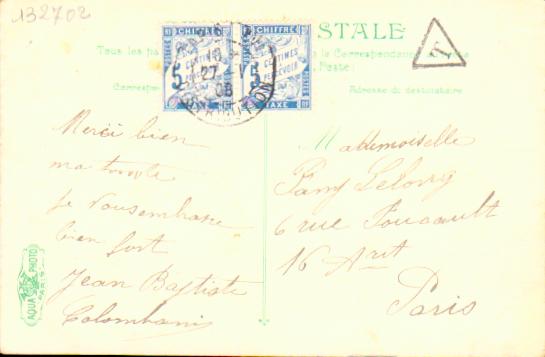 132702
STALE
Tous les pa
la Correspondan
Poste)
Correspo
Adresse du destinataire
T
CHIFFRE
5
CENTIMES
A
PERCEVOIR
TAXE
CHIFFRE
5
CENTIMES
A
PERCEVOIR
TAXE
27
08
DISTRIBUTION
Merci bien
ma
je vous embrasse
bien fort
Jean Baptiste
Colombani
Mademoiselle
Fany
6 rue Foucault
16 Arrt
Paris
AQUA PHOTO
PARIS